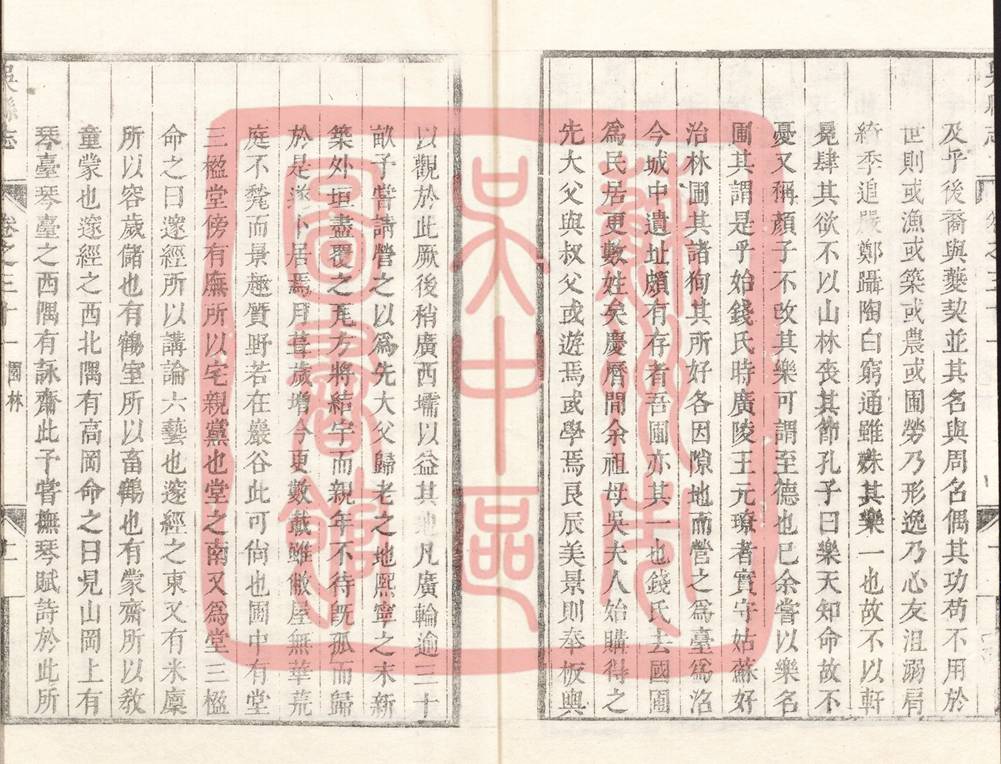 及乎後裔與夔契並其名與周召偶其功苟不用於
世則或漁或築或農或圃勞乃形逸乃心友沮溺肩
綺季追嚴鄭躡陶白窮通雖殊其樂一也故不以軒
冕肆其欲不以山林丧其節孔子曰樂天知命故不
憂又稱顏子不改其樂可謂至德也已余嘗以樂名
圃其謂是乎始錢氏時廣陵王元璙者實守姑蘇好
治林圃其諸狥其所好各因隙地而營之為臺為沼
今城中遺址頗有存者吾圃亦其一也錢氏去國圃
為民居更數姓矣慶曆間余祖母吳夫人始購得之
先大父與叔父或遊焉或學焉良辰美景則奉板輿
以觀於此厥後稍廣西壖以益其地凡廣輪逾三十
畝予嘗請營之以為先大父歸老之地熙寧之末新
築外垣盡覆之瓦方將結宇而親年不待既孤而歸
於是遂卜居焉月葺歲增今更數載雖敝屋無華荒
庭不甃而景趣質野若在巖谷此可尙也圃中有堂
三楹堂傍有廡所以宅親黨也堂之南又為堂三楹
命之曰邃經所以講論六藝也邃經之東又有米廩
所以容歲儲也有鶴室所以畜鶴也有蒙齋所以敎
童蒙也邃經之西北隅有高岡命之曰見山岡上有
琴臺琴臺之西隅有詠齋此予嘗撫琴賦詩於此所
吳縣志
卷之三十一
園林
蘇州市
吳中區
圖書館